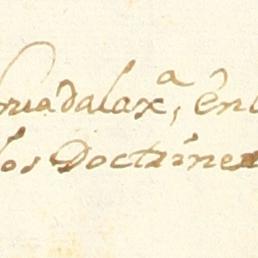 Guadalaxᵃ, en
los Doctrine